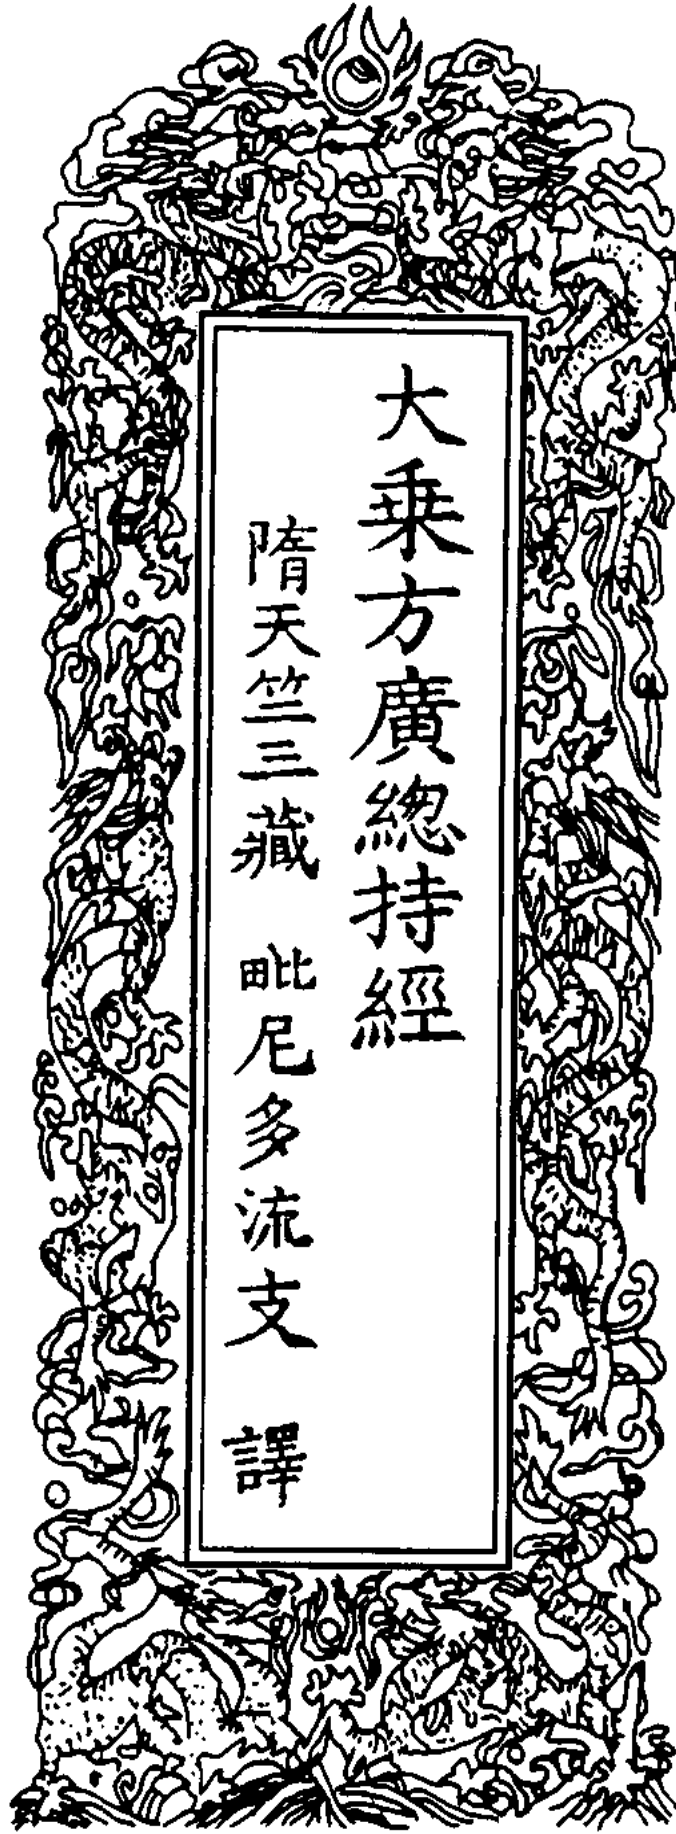 大乗方廣總持經
隋天竺三藏 毗尼多流支 譯